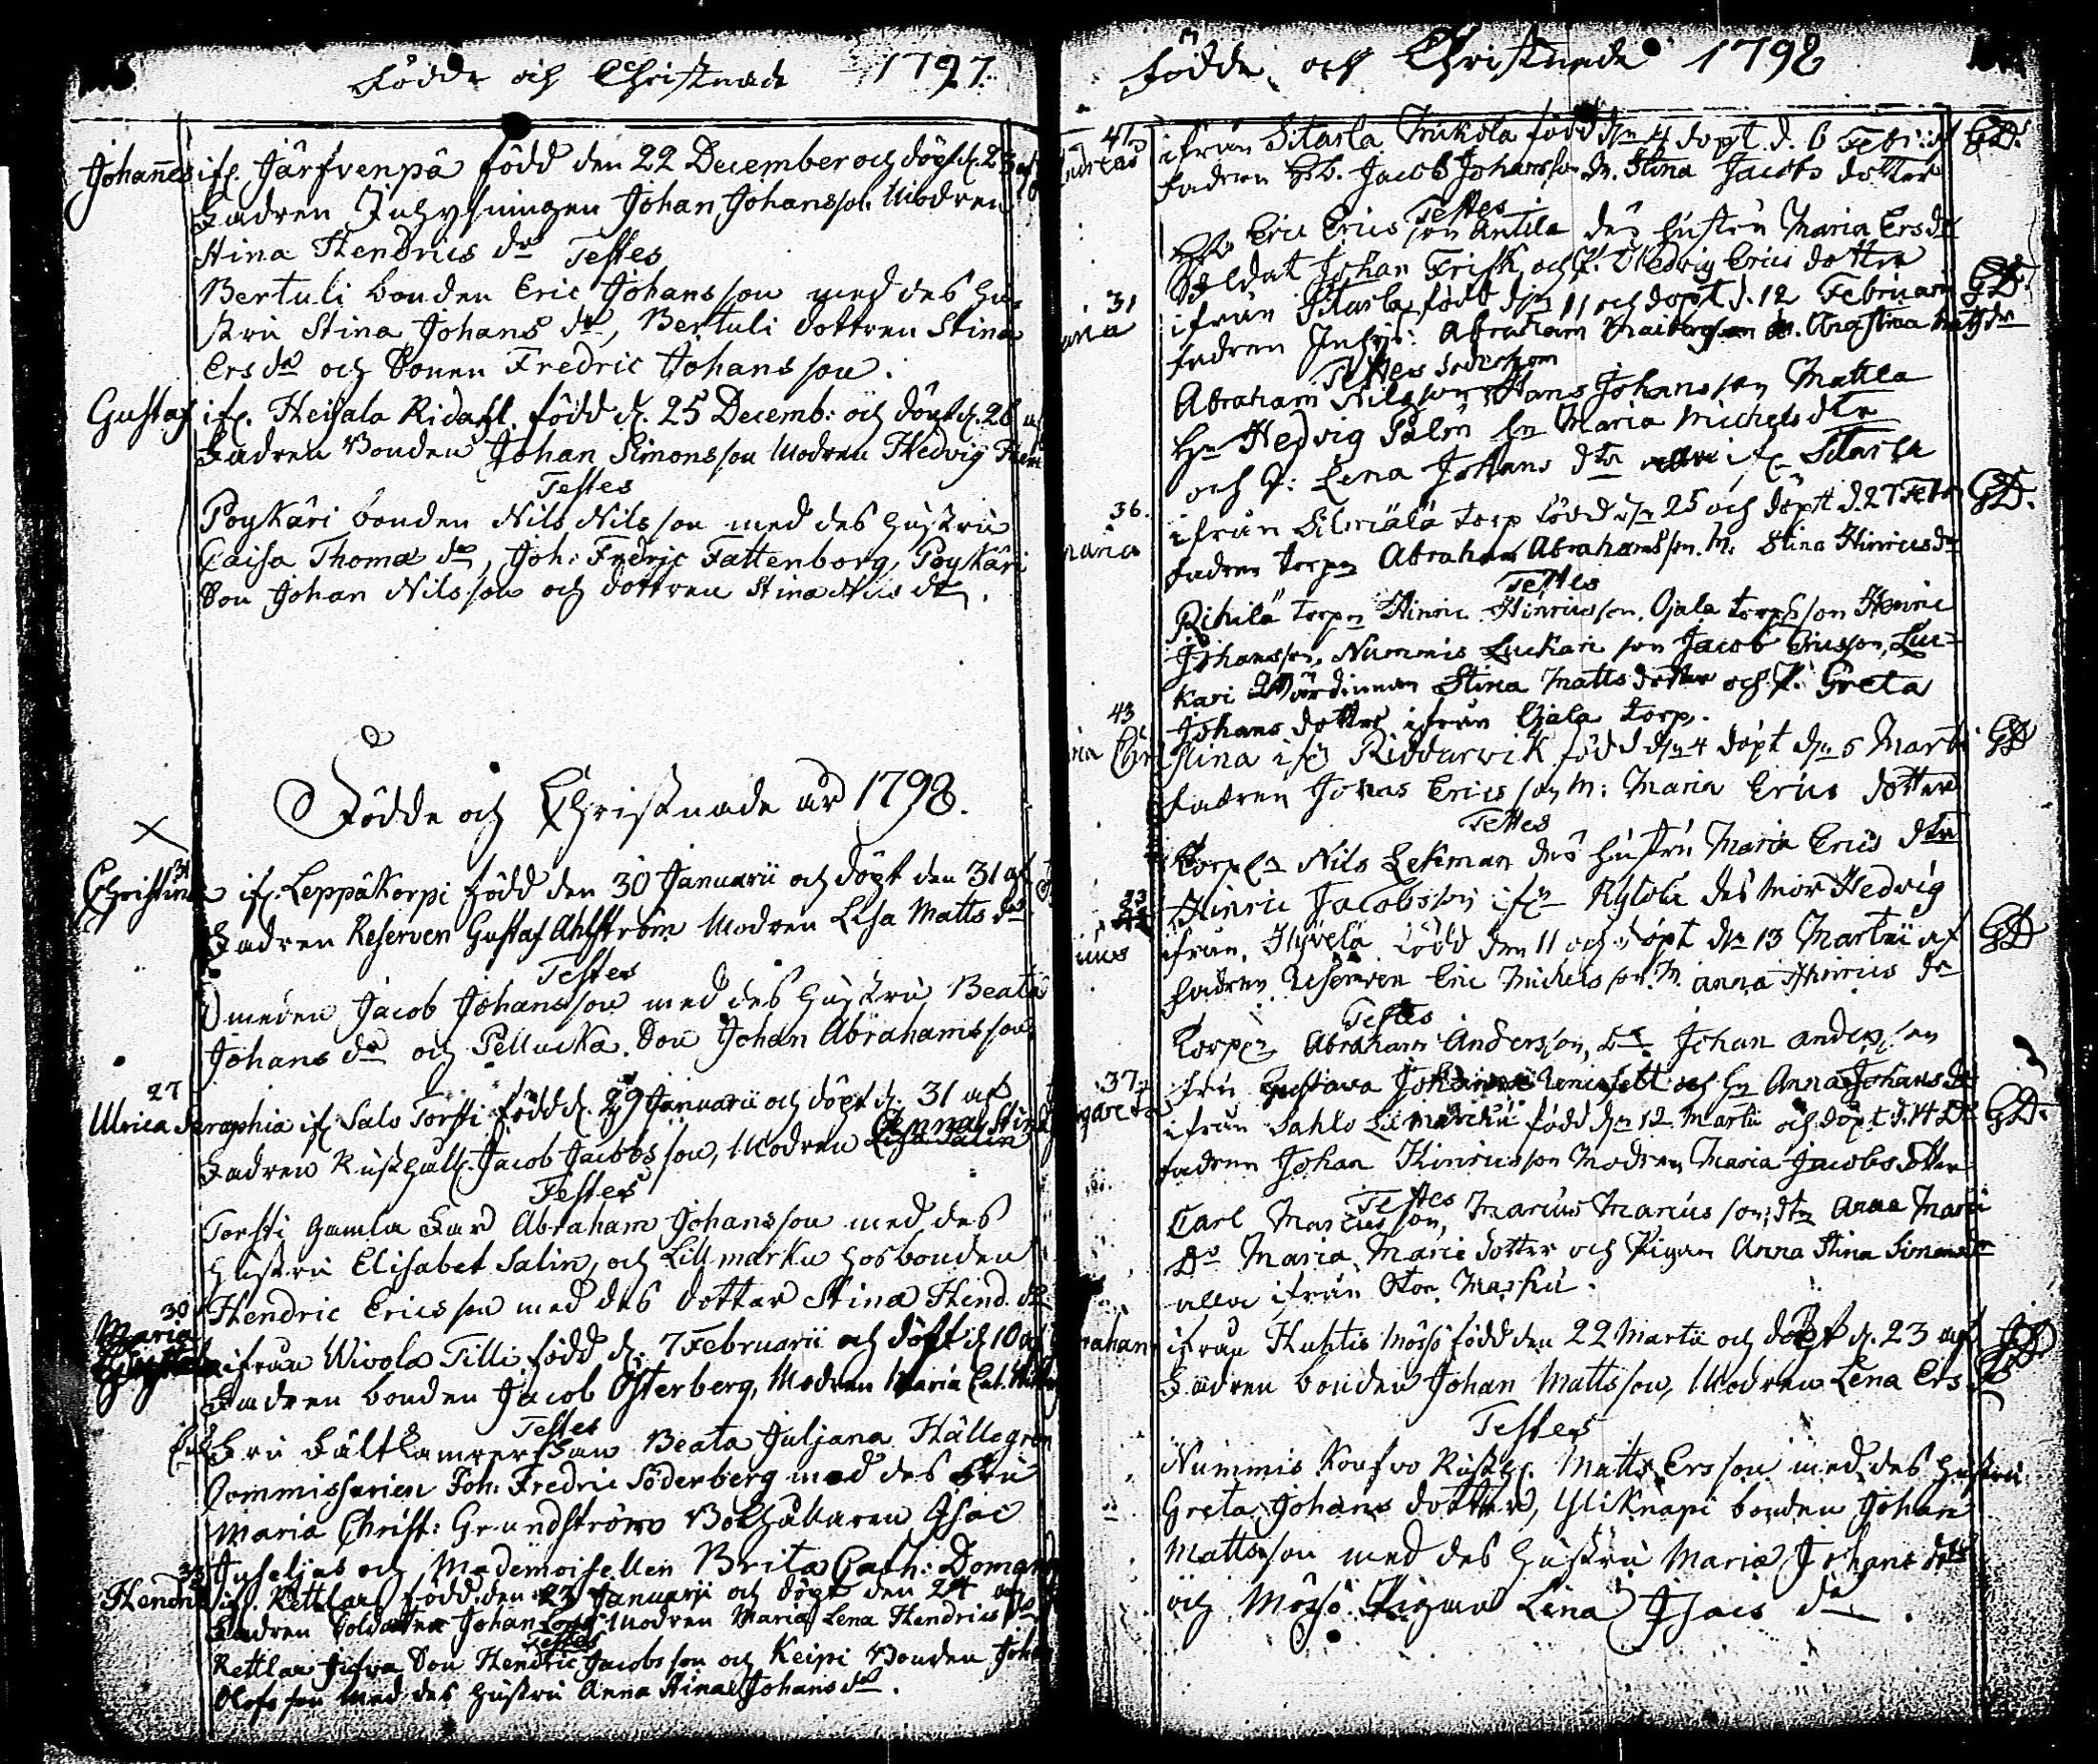 Födde och Christnade 1797.
Johannes ifr. Järfvenpä född den 22 December och döpt d. 23 af
Fadren Inhysningen Johan Johansson Modren
Stina Hendrics dr
Testes
Bertuli bonden Eric Johansson med des hu-
stru Stina Johans dr, Bertuli dottren Stina
Ersdr och Sonen Fredric Johansson.
Gustaf ifr. Heisala Ridast. född d. 25 Decemb: och döpt d. 26 af
Fadren Bonden Johan Simonsson Modren Hedvig
Testes
Poykäri bonden Nils Nilsson med des hustru
Caisa Thomæ dr, Joh: Fredric Fattenborg, Poykäri
Son Johan Nilsson och dottren Stina Nils dr.
Födde och Christnade år 1798.
31
Christina ifr. Leppäkorpi född den 30 Januarii och döpt den 31 af
Fadren Reserven Gustaf Ahlström Modren Lisa Matts dr
Testes
Smeden Jacob Johansson med des hustru Beata
Johans dr och Pellucka Son Johan Abrahamsson
27
Ulrica Seraphia ifr Salo Torsti född d. 29 Januarii och döpt d. 31 af
Anna Stina
Fadren Rusthåll. Jacob Jacobsson, Modren Lisa Salin
Testes
Torsti gamla Far Abraham Johansson med des
hustru Elisabet Salin, och Lillmarku hosbonden
Hendric Ericsson med des dotter Stina Hend. dr
30
Maria ifrån Wivola Tilli född d. 7 Februarii och döpt d 10 af
Fadren bonden Jacob Österberg, Modren Maria Cat.
Testes
Fru Fältkamrerskan Beata Juljana Hällegren
Commissarien Joh: Fredric Söderberg med des Fru
Maria Christ: Grundström Bokhållaren Isac
Juselius och Mademoisellen Brita Cath: Domar
33
Hendric ifr. Kettlar född den 23 Januarii och döpt den 24 af
Fadren Soldaten Johan Modren Maria Lena Hendrics dr
Testes
Kettlar Jufva Son Hendric Jacobsson och Keipi Bonden Johan
Olofsson med des hustru Anna Stina Johans dr.
Födde och Christnade 1798
47
Andreas ifrån Sitarla Mickola född dn 4 döpt d. 6 Febr: af GD.
Fadren Bd. Jacob Johansson M. Stina Jacobs dotter
Testes
Eric Ericsson Antila des hustru Maria Ersdr
Soldat Johan Frisk och P. Hedvig Erics dotter
31
aria ifrån Sitarla född dn 11 och döpt d. 12 Februari GD.
Fadren Inhys: Abraham M. Ana Stina Matsdr
Testes Söderholm
Abraham Nilsson Hans Johansson Mattla
Hu Hedvig Palén Hu Maria Michelsdtr
och P: Lena Johans dtr alla ifr Sitarla
36.
hana ifrån Silmälä torp född dn 25 och döpt d. 27 Febr GD.
Fadren torpn Abraham Abrahamsson. M. Stina Hinricsdr
Testes
Rikilä torpn Hinric Hinricsson, Ojala torpsson Henric
Johansson, Nummis Luckari son Jacob Ericsson, Luc-
kari Wärdinnan Stina Matts dotter och P. Greta
Johans dotter ifrån Ojala torp.
43
ina Christina ifr Riddarwik född dn 4 döpt dn 5 Marti GD
Fadren Johans Ericsson M: Maria Erics dotter
Testes
Korpln Nils Lekman des hustru Maria Erics dtr
Hinric Jacobsson ifrn Kylölä des mor Hedvig
33
ifrån Hyvelä född den 11 och döpt dn 13 Martii af GD
Fadren Reserven Eric Michelsson. M. Anna Hinrics dr
Testes
Torpn Abraham Andersson, Johan Andersson
fru Gustava Johanna och Hu Anna Johans dr
37.
gareta ifrån Sahlo Lillmarku född dn 12 Martii och döpt d. 14 GD.
Fadren Johan Hinricsson Modren Maria Jacobs dotter
Testes
Carl Marcusson, Marcus Marcusson, dtr Anna Marci
Do Maria Marci dotter och Pigan Anna Stina Simons dr
alla ifrån Stor Marku.
raham ifrån Huhtis Mössö född den 22 Martii och döpt d. 23 af GD
Fadren bonden Johan Mattsson, Modren Lena Ers dr
Testes
Nummis Konfvo Rusth. Matts Ersson med des hustru
Greta Johans dotter, Yliknapi bonden Johan
Mattsson med des hustru Maria Johans dotr
och Mössö Pigan Lena Isacs dr.